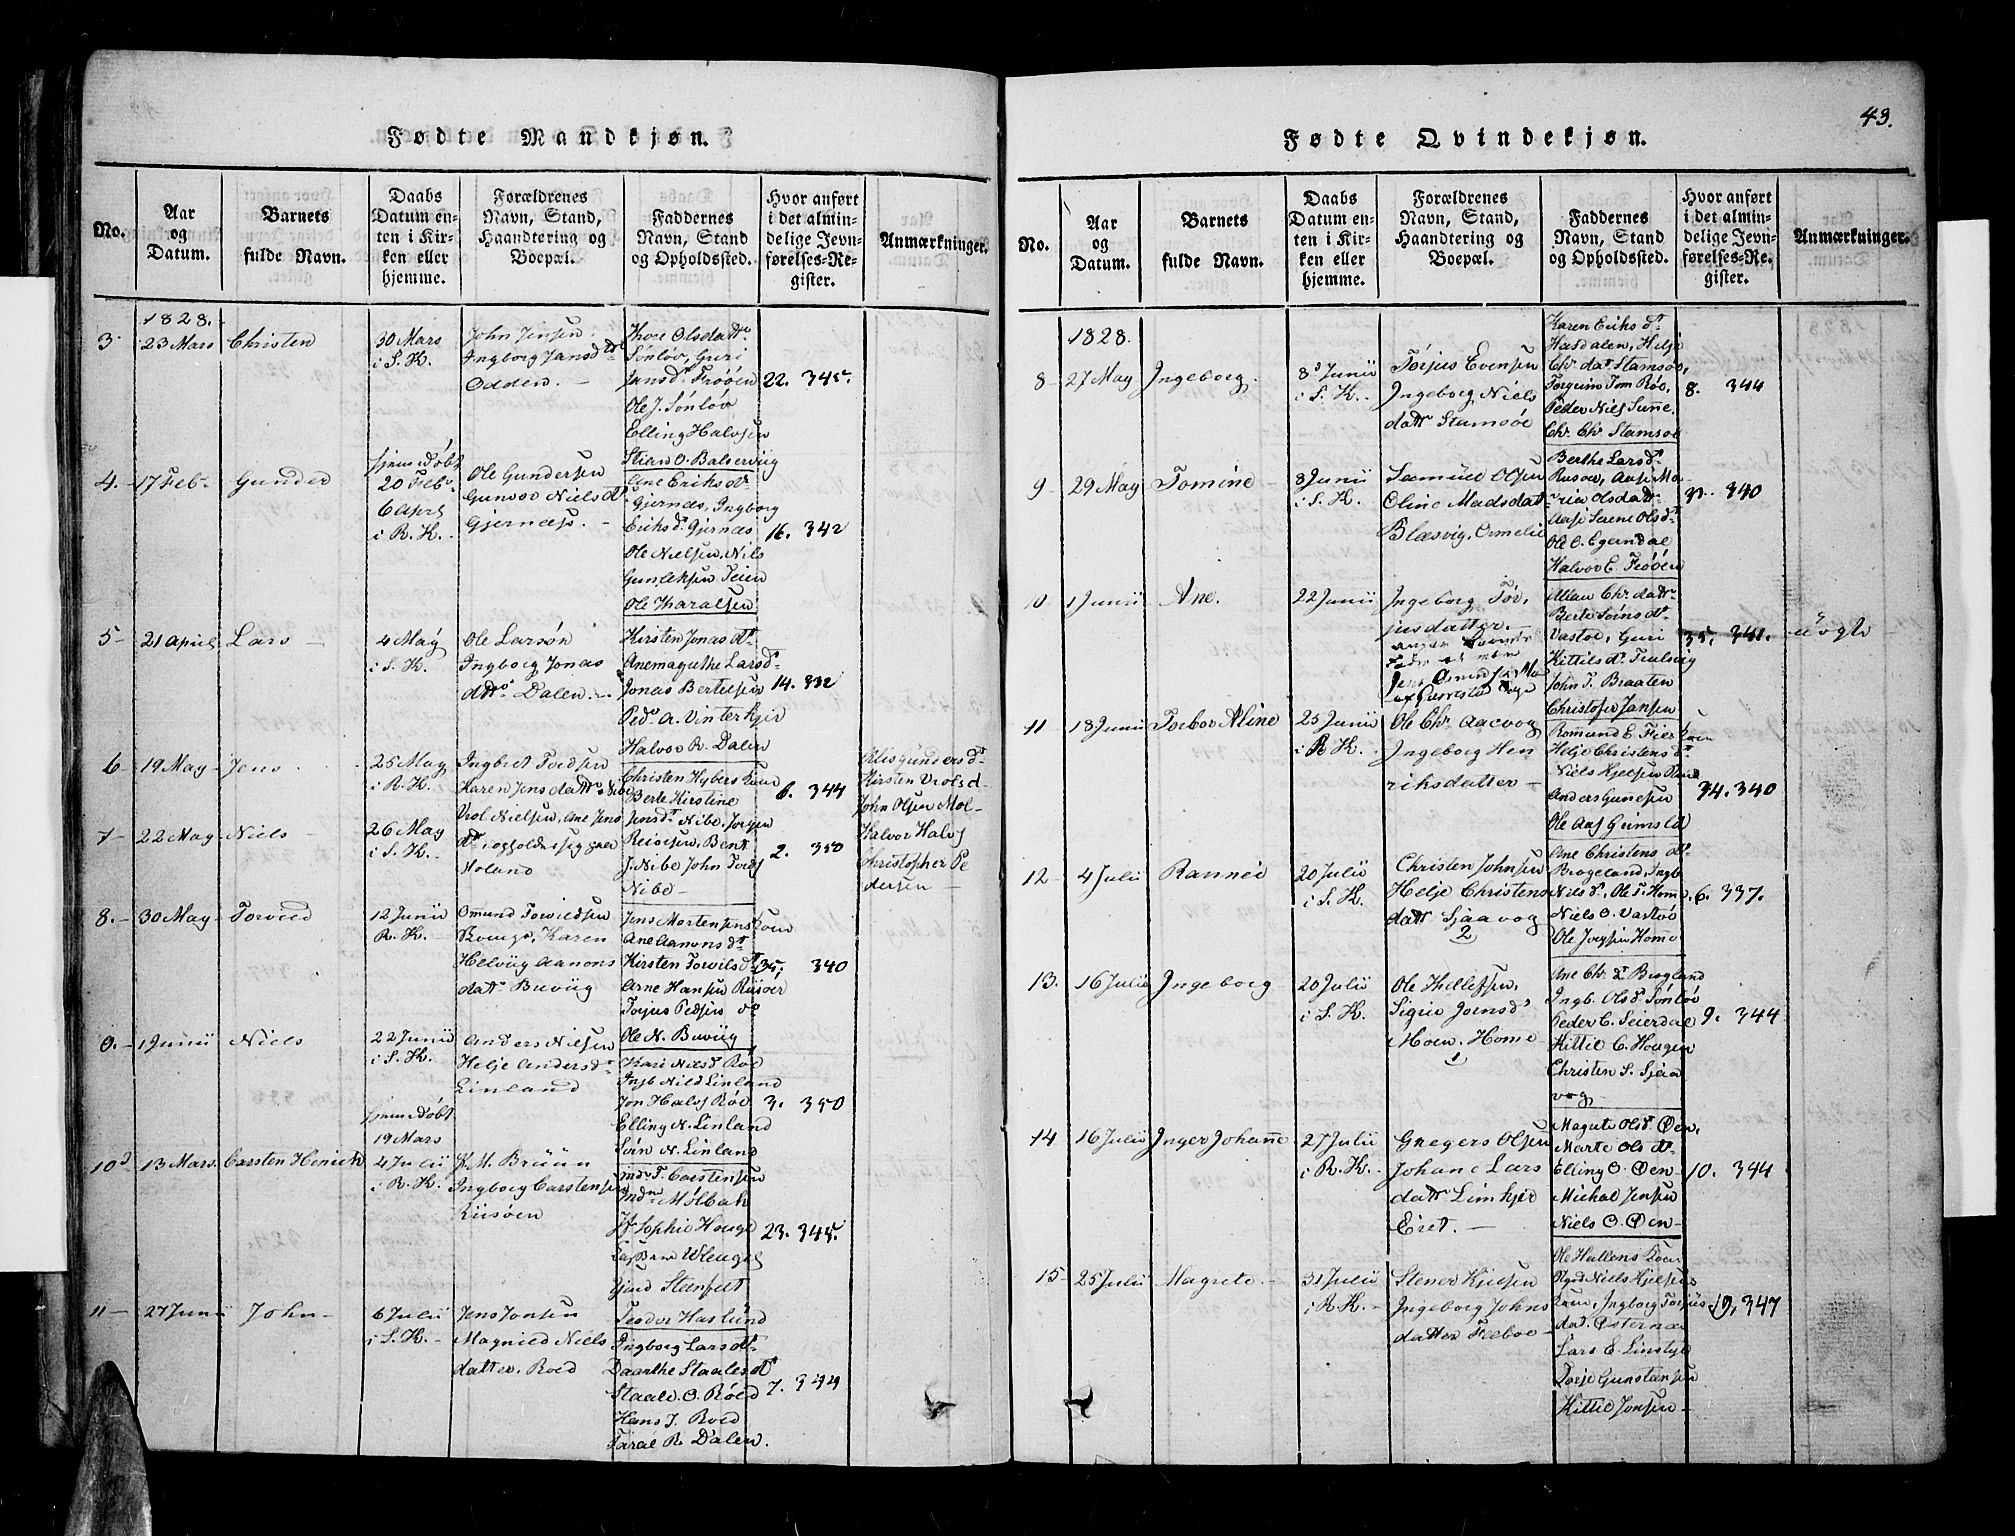 43.
Fødte Mandkjøn.
No.
Aar
og
Datum.
Barnets
fulde Navn.
Daabs
Datum en-
ten i Kir-
ken eller
hjemme.
Forældrenes
Navn, Stand,
Haandtering og
Boepæl.
Faddernes
Navn, Stand
og Opholdssted.
Hvor anført
i det almin-
delige Jevn-
førelses-Re-
gister.
Anmærkninger.
1828.
3
23 Mars
Christen
30 Mars
i S. K.
John Jensen
Ingborg Jansd
Odden.
Olsdatt
Sönlöv, Guri
Jansd. Frööen
Ole J. Sönlöv
Elling Halvsen
Stian O. Balservüg
22. 345.
4.
17 Feb.
Gunder
hjemmedöbt
20 Feb
6 April
i R. K.
Ole Gundersen
Gunvor Niels d
Gjernæs.
Ane Eriks d
Gjernæs, Ingborg
Eriksd. Gjernæs
Ole Nielsen, Nils
Gunleksen Teien
Ole Tharalsen
16. 342
5
21 April
Lars
4 May
i S. K.
Ole Larsön
Ingborg Jonas
datt Dalen.
Kirsten Jonas d
Anemagrethe Larsd
Jonas Bertelsen
Ped. A. Vinterkjer
Halvor R. Dalen
14. 332
6
19 May
Jens
25 May
i R. K.
Ingbret Tordsen
Karen Jensdatt
Christen Hybers Kone
Berte Kirstine
Jensd. Nibe, Jorgen
Reiersen, Bent
J. Nibe John Tords
Nibe
6. 344
7
22 May
Niels
26 May
i S. K.
Vrol Nielsen, Ane Jens
d. opholder sig paa
Holand
2. 350
Alis Gunders d
Kirsten Vrolsd
John Olsen Mol-
Halvor Halvs
Christopher Pe
dersen
8.
30 May
Torvild
12 Junii
R. K.
Omund Torvildsen
Karen
Helvüg Aanons
datt Buvüg
Jens Mortensens Kone
Ane Aanons d
Kirsten Torvilsd
Arne Hansen Rüsöer
Torjus Pedsen
Ole N. Buvüg
35. 340
9.
1 Junii
Niels
22 Junii
i S. K.
Anders Nielsen
Helje Andersd
Linland
Kari Nilsd Röe
Ingb Nilsd Linland
Jon Halvs Röe
Elling N. Linland
Sörn N. Linland
3. 350
10
13 Mars
Carsten Henich
hjemmedöbt
19 Mars
4 Julii
i R. K.
K. M. Brüün
Ingborg Carstensen
Riisöen
T. Carstensen
Mölbak
Jf Sophie Houge
Teodor Haslund
23. 345.
11
27 Junii
John
6 Julii
i S. K.
Jens Jonsen
Magnild Niels
datter. Röed
Ingborg Lars d
Daarthe Staales d
Staale O. Röed
Hans J. Roed
Taral R. Dalen.
7. 344
Fødte Qvindekjøn.
No.
Aar
og
Datum.
Barnets
fulde Navn.
Daabs
Datum en-
ten i Kir-
ken eller
hjemme.
Forældrenes
Navn, Stand,
Haandtering og
Boepæl.
Faddernes
Navn, Stand
og Opholdssted.
Hvor anført
i det almin-
delige Jevn-
førelses-Re-
gister.
Anmærkninger.
1828.
8
27 May
Ingeborg.
8 Junii
i S. K.
Torjus Evensen
Ingeborg Niels
datt Stamsöe
Karen Eriks d
Hasdalen, Helje
Chr. dat Stamsöe,
Torguim Tom Röe,
Peder Niels Sunne
Chr. Chr. Stamsöe
8. 344
9
29 May
Tomine
8 Junii
i S. K.
Samuel Olsen
Oline Madsdat
Blæsvig, Ormelie
Berthe Larsd
Rusöe, Aase Ma-
ria Olsdatt
Aase Serene Olsd
Ole O. Egerndal
Halvor E. Frööen
33. 340
10
1 Junii
Ane.
22 Junii
Ingeborg Tor,
jusdatter.
Chr. datt
Berte Söns d
Vastöe, Guri
Kittils d. Trulsvig
John T. Braaten
Christofer Jansen
35. 341.
uægte
11
18 Junii
Torbor Aline
25 Junii
i R K.
Ole Chr. Aaevog
Ingeborg Hen
riksdatter
Romund E. Fier Kone
Helje Christens d
Niels Kjelsen
Anders Gunesen
Ole Aas Grimsld
34. 340
12
4 Julii
Rannei
20 Julii
i S. K.
Christen Johnsen
Helje Christens
datt Sjaavog
2
Ane Christens d
Brogeland, Ingb
Nils d, Ole T. Home
Niels O. Vastöe
Ole Jorgsen Home
6. 337.
13.
16 Julii
Ingeborg
20 Julii
i S. K.
Ole Thellefsen,
Sigrie Jornsd
Moen. Home
1
Ane Chr. d Brogland
Ingb. Olsd Sönlöv
Peder C. Seierdal
Kittil C. Hougen
Christen S. Sjaa
vog
9. 344
14
16 Julii
Inger Johanne
27 Julii
i R. K.
Gregers Olsen
Johane Lars
datt Limkjer
Eiet.
Magrete Olsd Øen,
Marte Ols d
Elling O. Øen
Michal Jensen
Niels O. Øen
10. 344
15
25 Julii
Magrete
31 Julii
i R K.
Stener Kjelsen
Ingeborg Johns
datter Feeboe
Ole Hallens Kone
Niels Hjelsens
Kone, Ingborg Torjus
dat. Østernæs
Lars E. Linstøl
Torje Gunstensen
Kittil Jonsen
19. 347